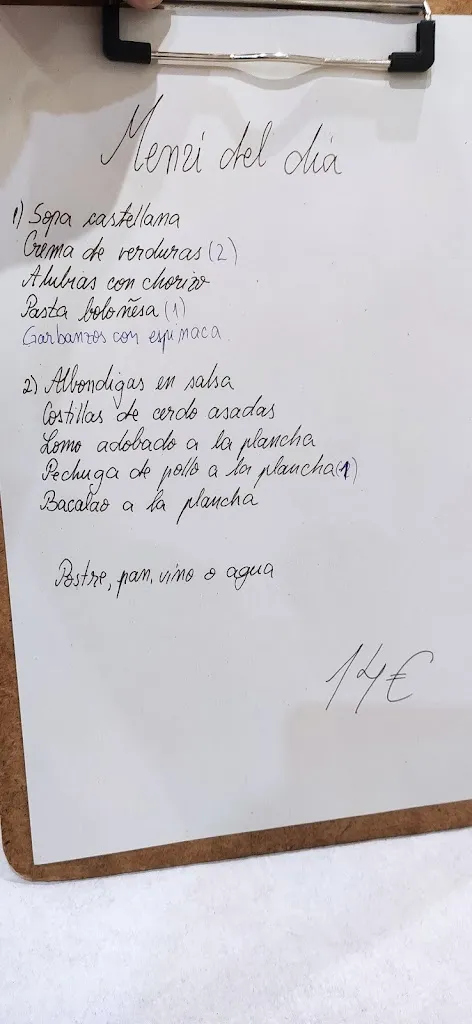 Menú del día
1) Sopa castellana
Crema de verduras (2)
Alubias con chorizo
Pasta boloñesa (1)
Garbanzos con espinaca
2) Albondigas en salsa
Costillas de cerdo asadas
Lomo adobado a la plancha
Pechuga de pollo a la plancha (1)
Bacalao a la plancha
Postre, pan, vino o agua
14€